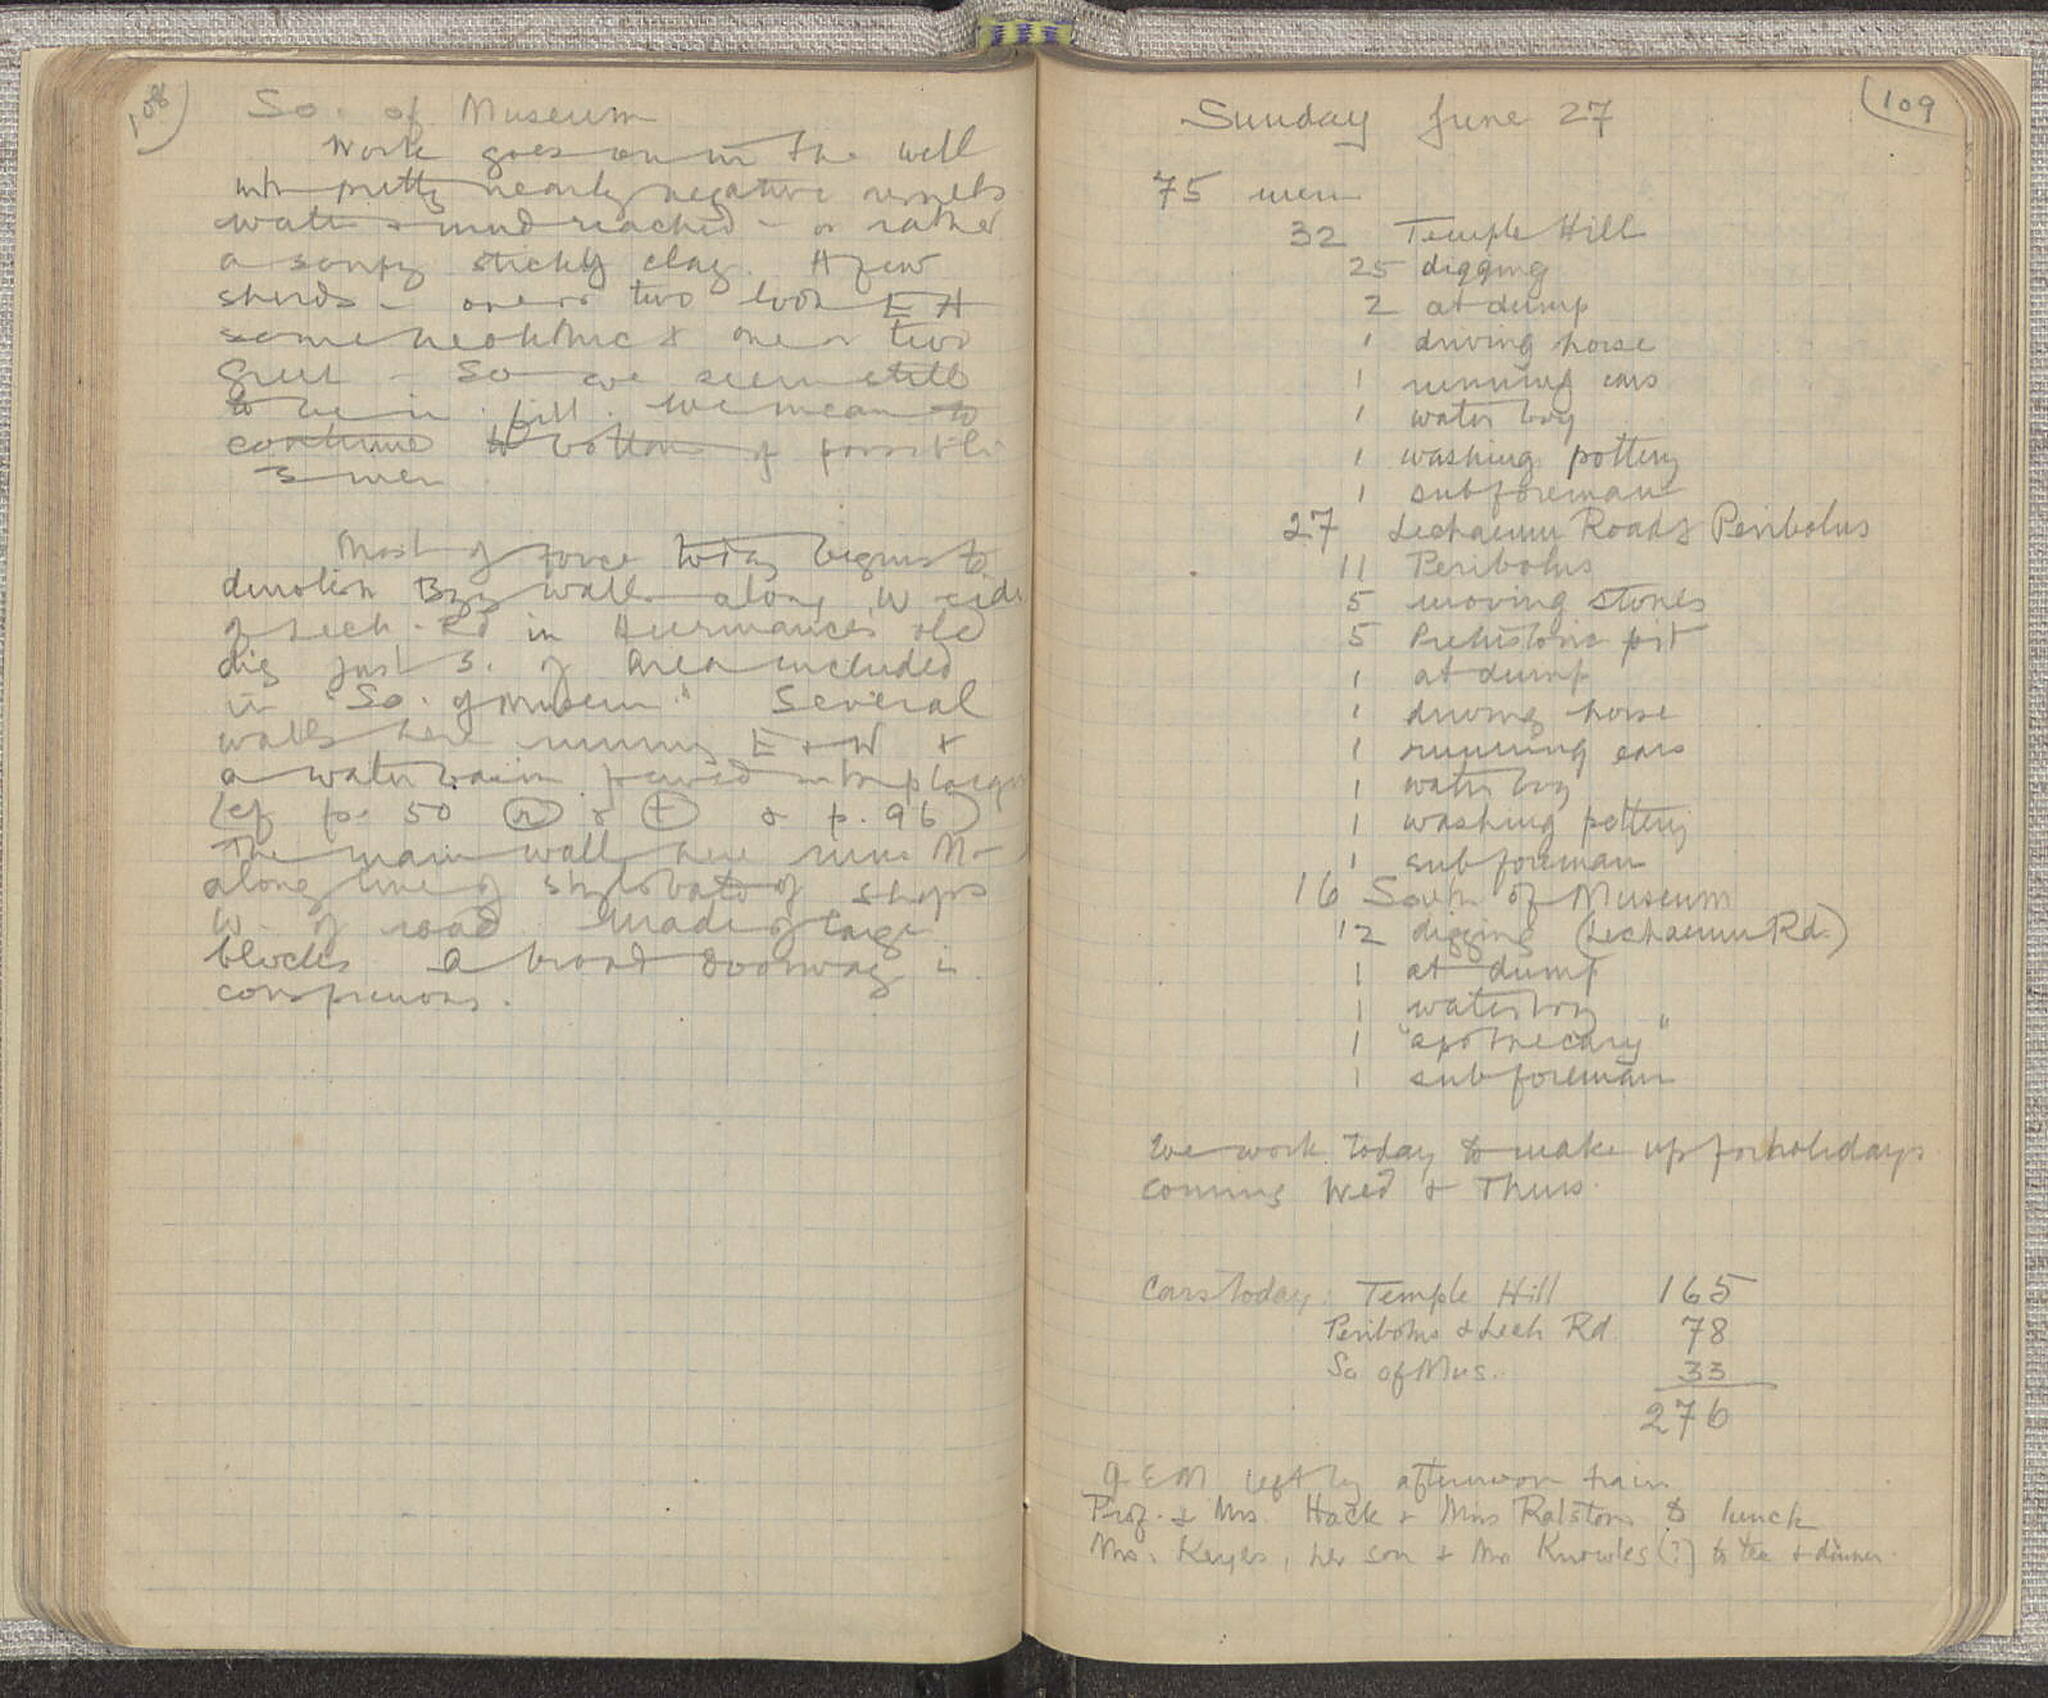 108
So. of Museum
Work goes on in the well
with pretty nearly negative results
water & mud reached - or rather
a soupy sticky clay. A few
sherds - one or two look EH
some neolithic & one or two
Greek - So we seem still
to be in fill. We mean to
continue to bottom if possible
3 men
Most of force today begins to
demolish Byz walls along W side
of Lech. Rd in Heermance's old
dig just S. of area included
in "So. of Museum" Several
walls here running E & W &
a water basin paved with plaques
(cf p. 50 (r) & (t) & p. 96)
The main wall here runs N-
along line of stylobate of shops
W. of road made of large
blocks a broad doorway is
conspicuous.
109
Sunday June 27
75 men
32 Temple Hill
25 digging
2 at dump
1 driving horse
1 running cars
1 water boy
1 washing pottery
1 subforeman
27 Lechaeum Road & Peribolus
11 Peribolus
5 moving stones
5 Prehistoric pit
1 at dump
1 driving horse
1 running cars
1 water boy
1 washing pottery
1 subforeman
16 South of Museum
12 digging (Lechaeum Rd.)
1 at dump
1 waterboy
1 "apothecary"
1 subforeman
We work today to make up for holidays
coming Wed & Thurs.
Cars today: Temple Hill 165
Peribolus & Lech Rd 78
So of Mus. 33
276
GEM left by afternoon train
Prof. & Mrs. Hack & Miss Ralston to lunch
Mrs. Keyes, her son & Mr Knowles (?) to tea & dinner.